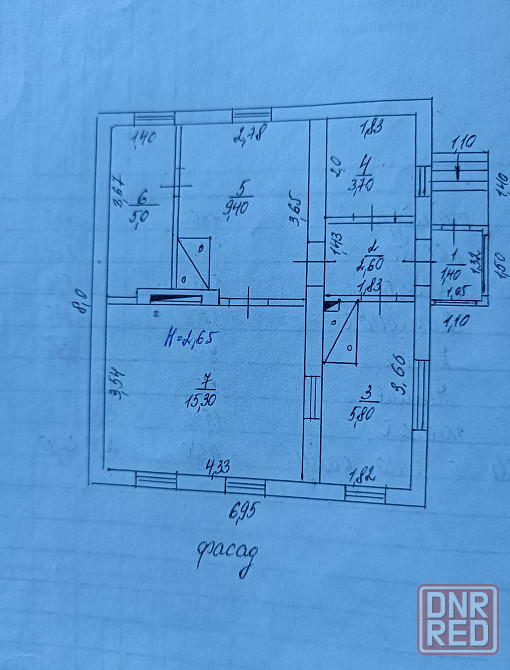 1,40
2,78
1,83
1,10
3,67
6
5,0
5
9,40
3,65
2,0
4
3,70
1,40
1,43
2
2,60
1,83
1
1,40
1,32
1,50
1,05
1,10
8,0
2
H=2,65
3,54
7
15,30
3
5,80
3,66
4,33
1,82
6,95
фасад
DNR
RED